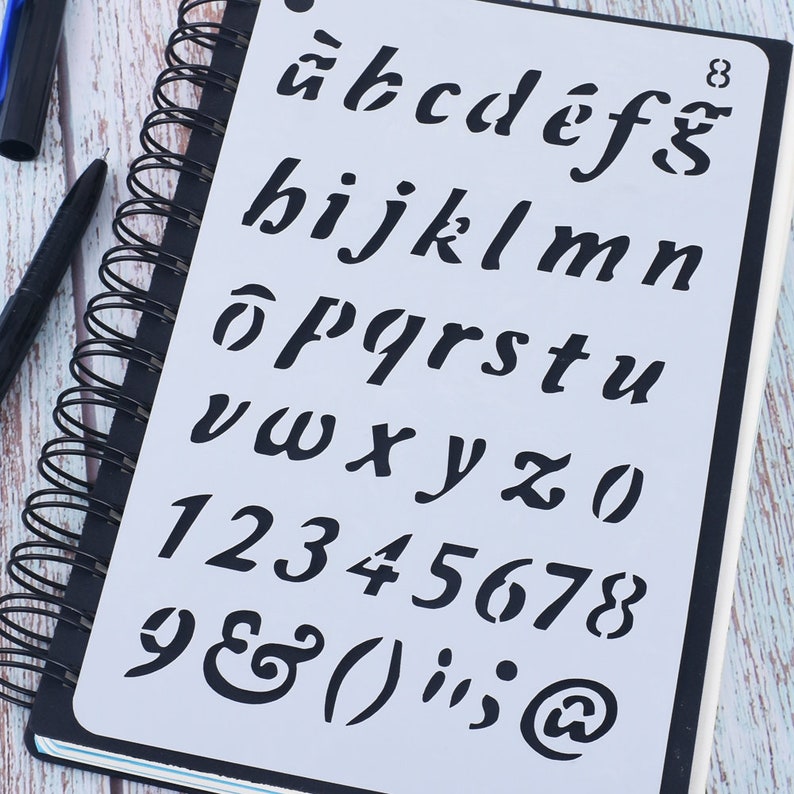 8
àbcdéfğ
hijklmn
ôpqrstu
vwxyz0
12345678
9&()'',;@